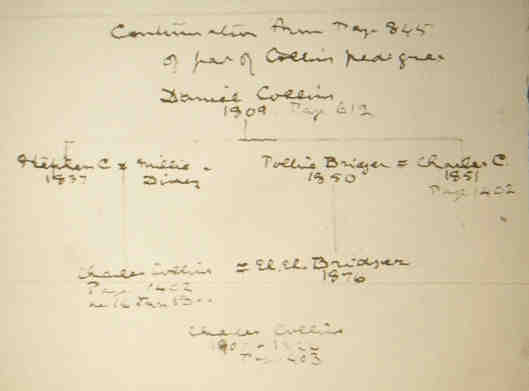 Continuation from Page 845
of par of Collins pedigree
Daniel Collins
1809 Page 612
Stephen C = Millie Tollie Bridger = Charles C.
1837 1850 1851
Page 1402
Charles Collins = Bridger
Page 1402 1876
Charles Collins
Page 1403